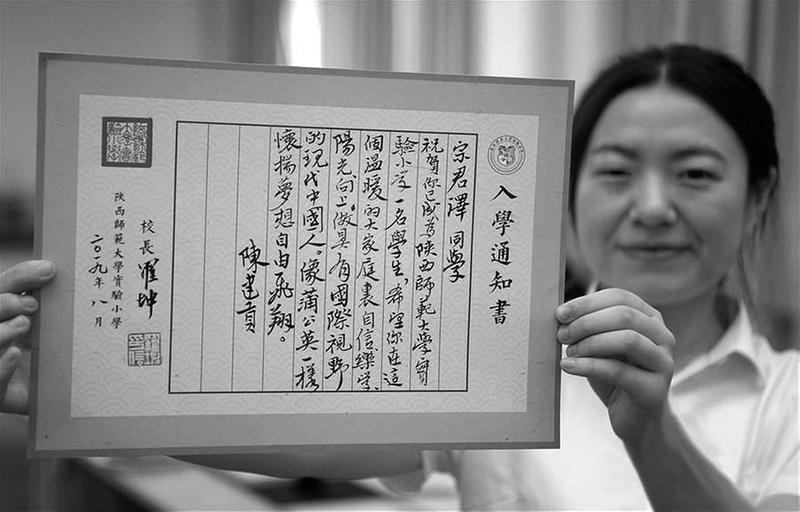 入學通知書
宗君澤同學
祝賀你已成為陝西師範大學實
驗小學一名學生，希望你在這
個溫暖的大家庭裏自信、樂學、
陽光、向上，做具有國際視野
的現代中國人。像蒲公英一樣
懷揣夢想自由飛翔。
陳建貢
校長 羅坤
陝西師範大學實驗小學
二〇一九年八月